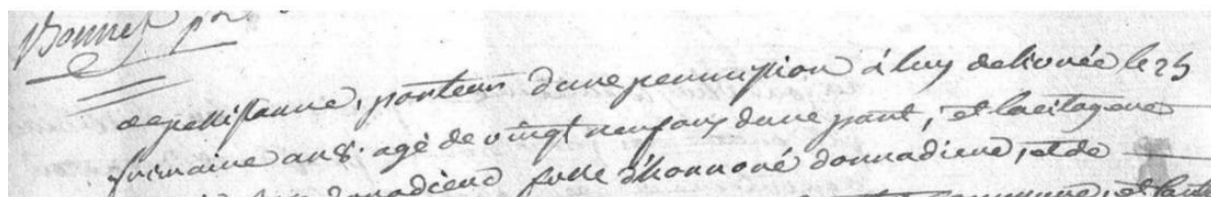 Bonnet
de pellissanne, porteur d'une permission à luy délivrée le 25
frimaire an 8. agé de vingt neuf ans d'une part, et la citoyene
donnadieu fille d'honnoré donnadieu, et de
commune, et